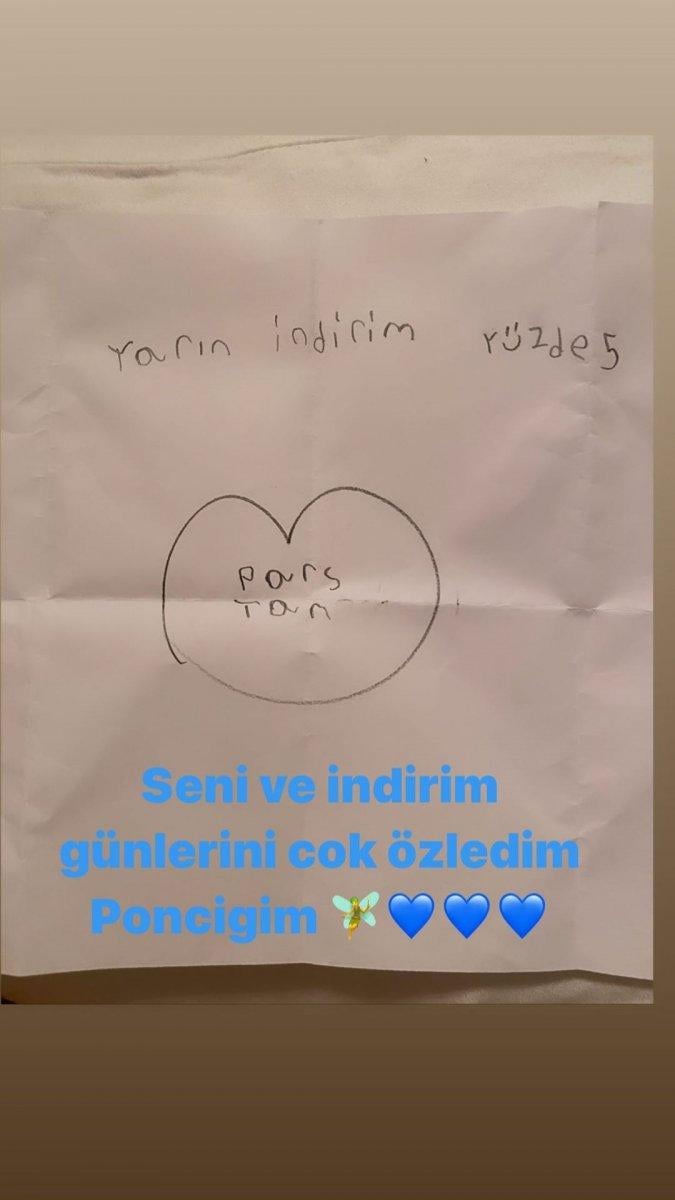 Yarın indirim yüzde 5
Pars
Tan
Seni ve indirim
günlerini cok özledim
Poncigim 🧚💙💙💙